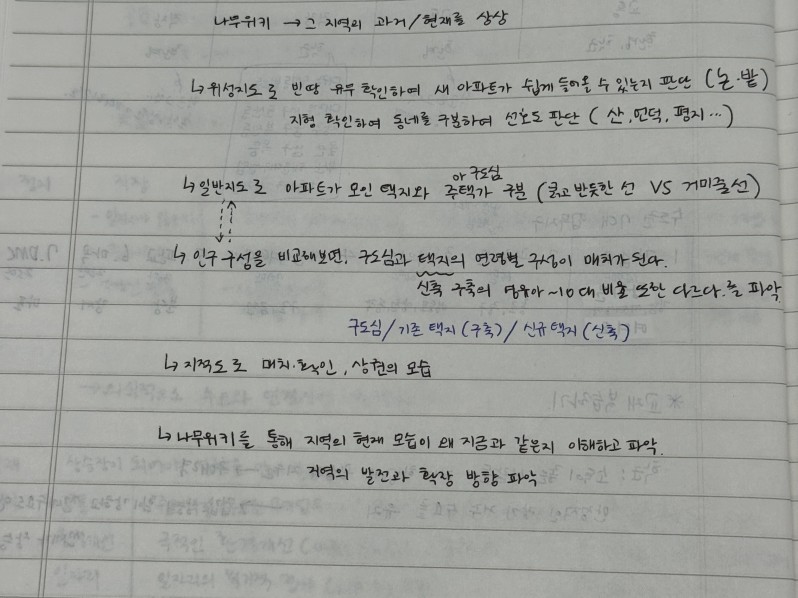 나무위키 → 그 지역의 과거/현재를 상상
↳ 위성지도로 빈땅 유무 확인하여 새 아파트가 쉽게 들어올 수 있는지 판단 (논·밭)
지형 확인하여 동네를 구분하여 선호도 판단 (산, 언덕, 평지…)
아 구도심
↳ 일반지도로 아파트가 모인 택지와 주택가 구분 (굵고 반듯한 선 VS 거미줄선)
↳ 인구 구성을 비교해보면, 구도심과 택지의 연령별 구성이 매치가 된다.
신축 구축의 영유아~10대 비율 또한 다르다.를 파악
구도심/기존 택지(구축)/신규택지(신축)
↳ 지적도로 매치·확인, 상권의 모습
↳ 나무위키를 통해 지역의 현재 모습이 왜 지금과 같은지 이해하고 파악.
지역의 발전과 확장 방향 파악